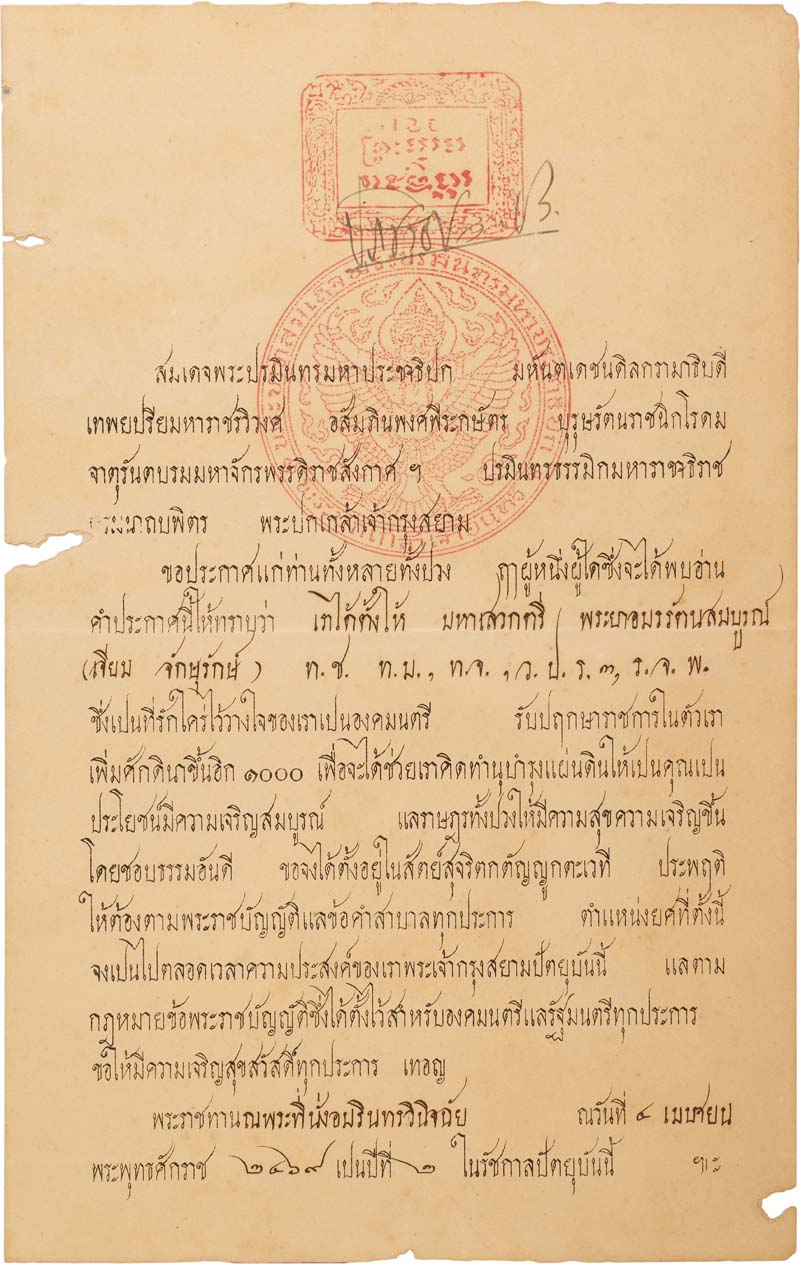 สมเดจพระปรมินทรมหาประชาธิปก มหันตเดชนดิลกรามาธิบดี
เทพยปรียมหาราชรวิวงศ อสัมภินพงศพีระกษัตร บุรุษรัตนราชนิกโรดม
จาตุรันตบรมมหาจักรพรรดิราชสังกาศ ฯ ปรมินทรธรรมิกมหาราชาธิราช
บรมนาถบพิตร พระปกเกล้าเจ้ากรุงสยาม
ขอประกาศแก่ท่านทั้งหลายทั้งปวง ฤๅผู้หนึ่งผู้ใดซึ่งจะได้พบอ่าน
คำประกาศนี้ให้ทราบว่า เราได้ตั้งให้ มหาเสวกตรี พระยาอมรรัตนสมบูรณ์
(เจียม จักษุรักษ์) ท.ช. ท.ม., ท.จ., ว.ป.ร.๓, ร.จ.พ.
ซึ่งเป็นที่รักใคร่ไว้วางใจของเราเปนองคมนตรี รับปฤกษาราชการในตัวเรา
เพิ่มศักดินาขึ้นอิก ๑๐๐๐ เพื่อจะได้ช่วยเราคิดทำนุบำรุงแผ่นดินให้เปนคุณเปน
ประโยชน์มีความเจริญสมบูรณ์ แลราษฎรทั้งปวงให้มีความสุขความเจริญขึ้น
โดยชอบธรรมอันดี ขอจงได้ตั้งอยู่ในสัตย์สุจริตกตัญญูกตะเวที ประพฤติ
ให้ต้องตามพระราชบัญญัติแลข้อคำสาบาลทุกประการ ตำแหน่งยศที่ตั้งนี้
จงเป็นไปตลอดเวลาความประสงค์ของเราพระเจ้ากรุงสยามปัตยุบันนี้ แลตาม
กฎหมายข้อพระราชบัญญัติซึ่งได้ตั้งไว้สำหรับองคมนตรีแลรัฐมนตรีทุกประการ
ขอให้มีความเจริญสุขสวัสดิ์ทุกประการ เทอญ
พระราชทานณพระที่นั่งอมรินทรวินิจฉัย ณวันที่ ๔ เมษายน
พระพุทธศักราช ๒๔๖๙ เปนปีที่ ๒ ในรัชกาลปัตยุบันนี้ ฯะ